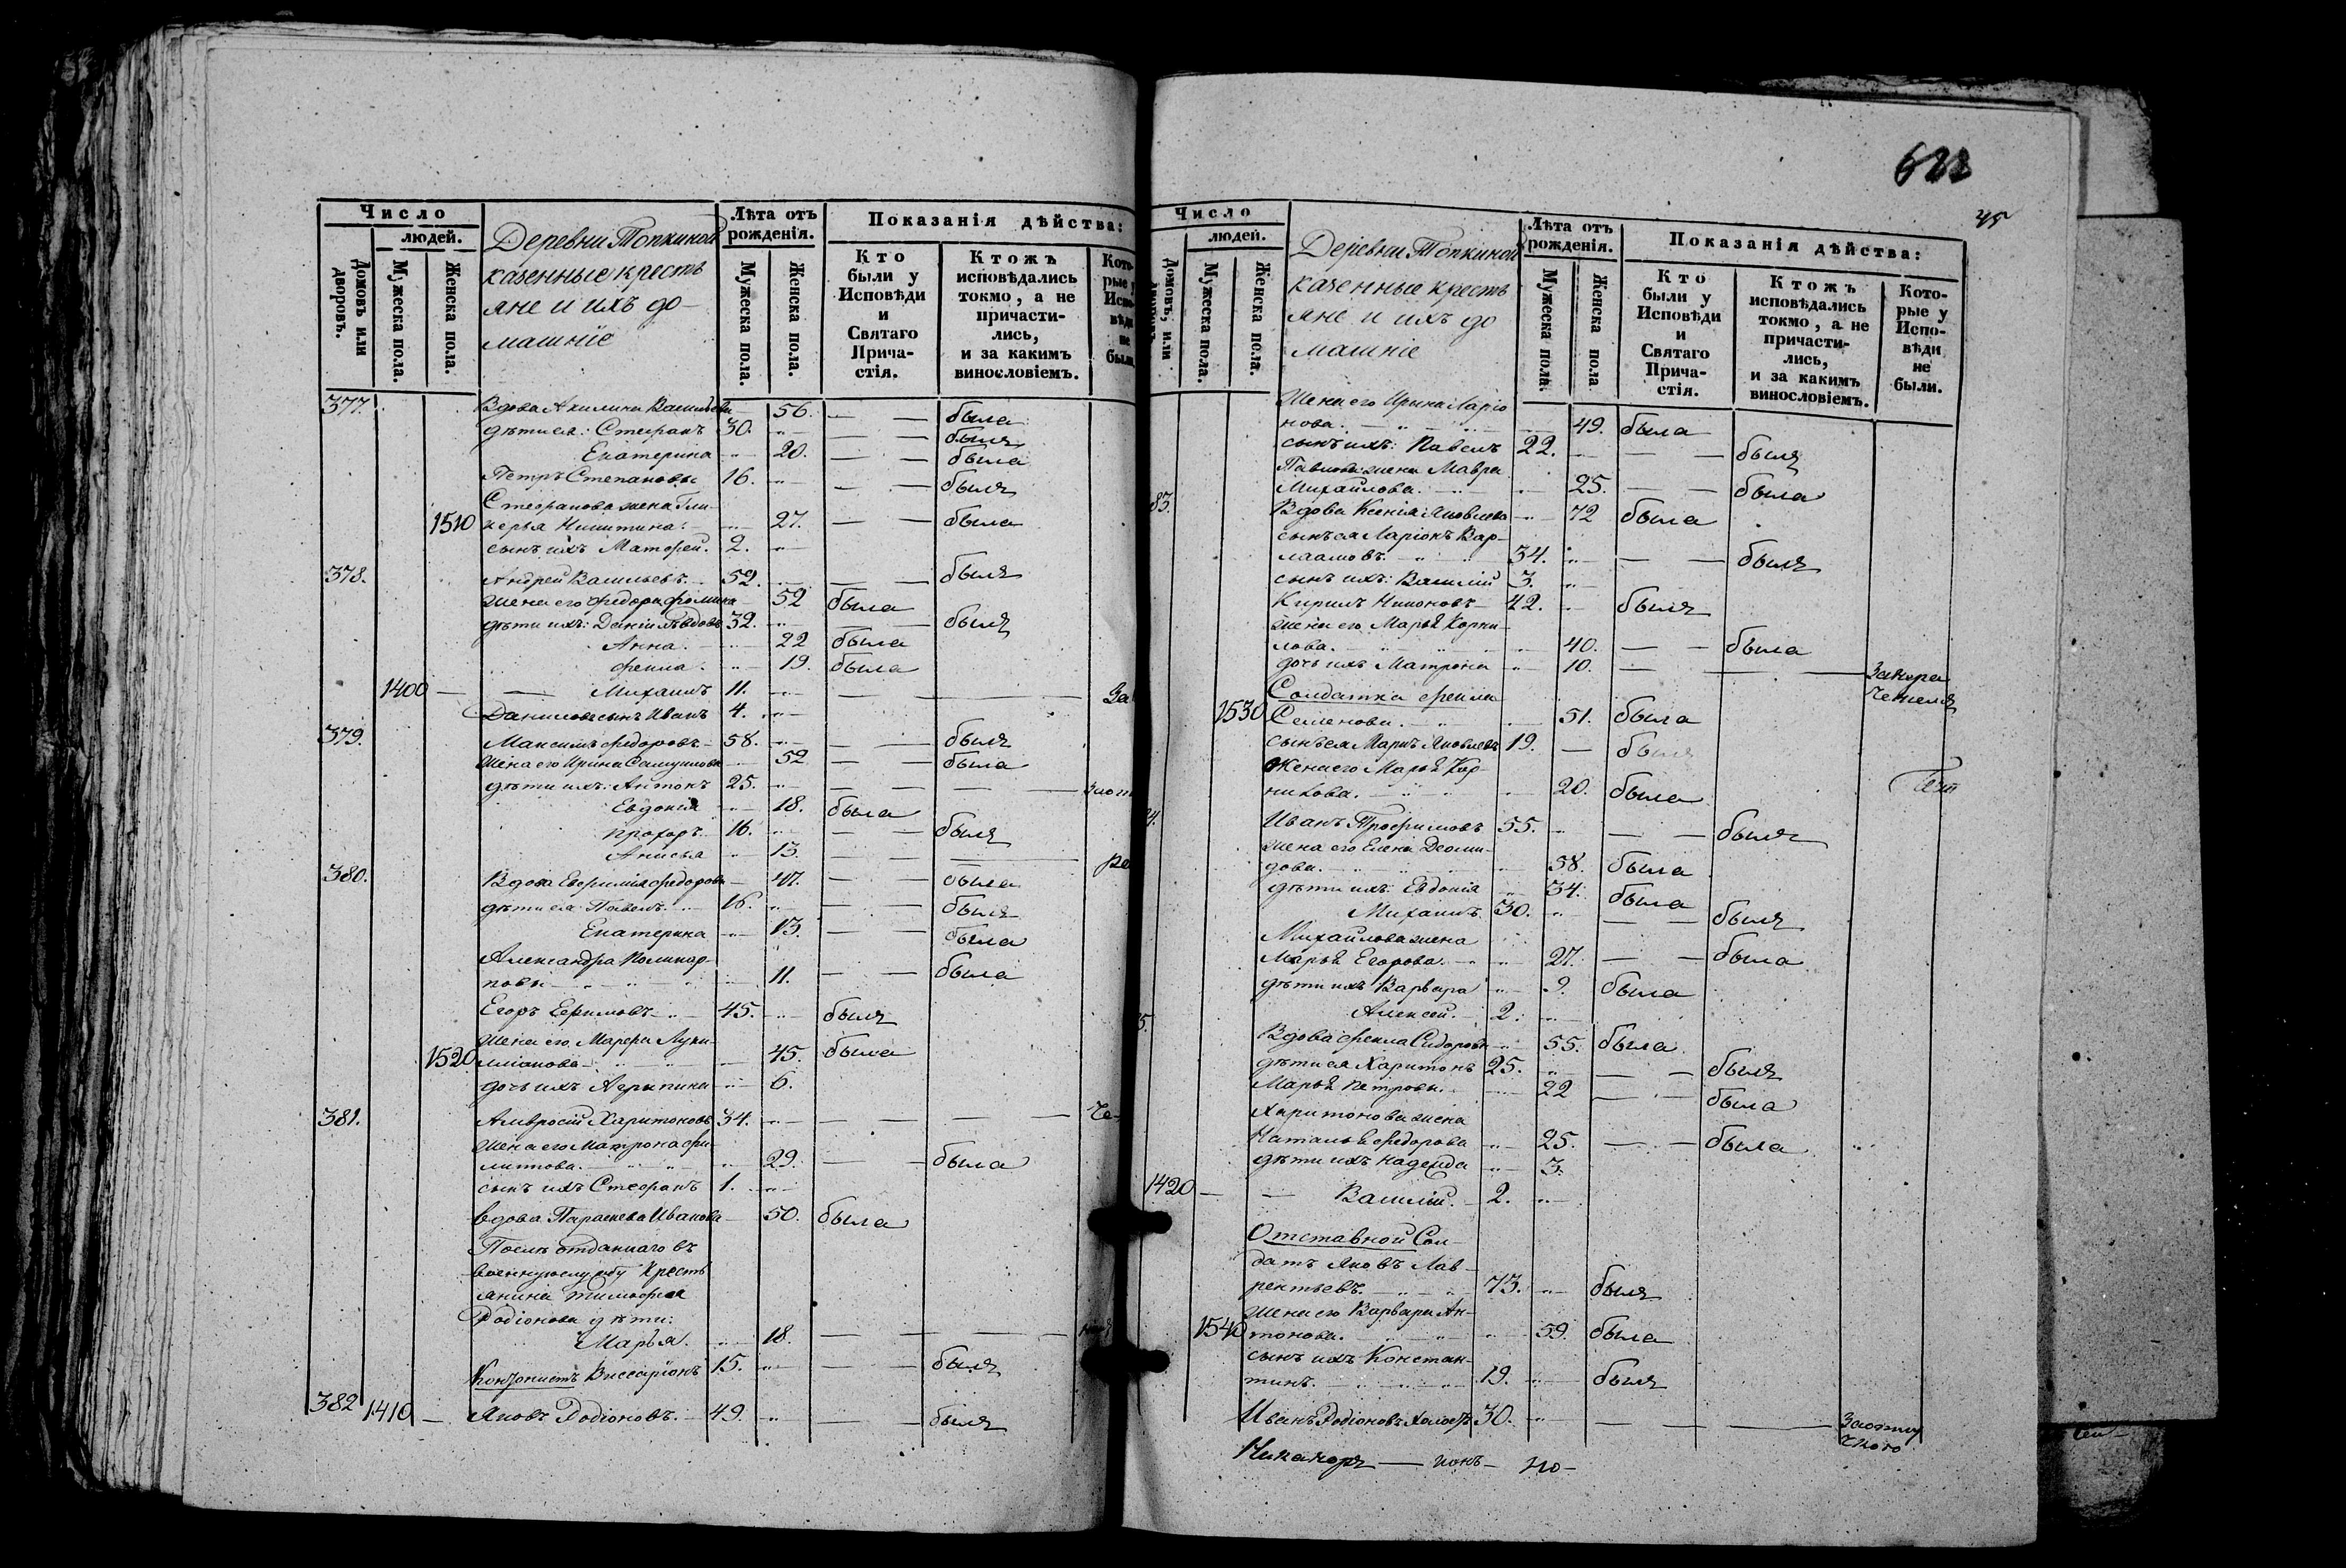 Число
людей.
Домовъ или дворовъ.
Мужеска пола.
Женска пола.
Деревни Топкиной
казенные кресть
яне и ихъ до-
машніе
Лѣта отъ рожденія.
Мужеска пола.
Женска пола.
Показанія дѣйства:
Кто были у Исповѣди и Святаго Прича-стія.
Ктожъ исповѣдались токмо, а не причасти-лись, и за какимъ винословіемъ.
377. Вдова Акилина Васильева 56. — была
дѣти ея: Стефанъ 30. — — былъ
Екатерина 20. — — была
Петръ Степановъ 16. — — былъ
Стефанова жена Гли-
1510 керья Никитина. 27. — — была
сынъ ихъ Матфей. 2.
378. Андрей Васильевъ. 52. — — былъ
жена его Федора Фомина 52 была
дѣти ихъ: Даніилъ вдовъ 32. — былъ
Анна. 22 была
Фекла. 19. была
1400 — — Михаилъ 11. — — За
Даниловъ сынъ Иванъ 4.
379. Максимъ Федоровъ 58. — — былъ
жена его Ирина Самуилова 52 — — была
дѣти ихъ: Антонъ 25. — — — —
Евдокія 18. была
Прохоръ 16. — — былъ
Анисья 13. — — —
380. Вдова Евфимія Федорова 47. — — была
дѣти ея: Павелъ 16. — — былъ
Екатерина 13. — — была
Александра Поликар-
пова 11. — — была
Егоръ Ефимовъ 45. былъ
жена его Марфа Луки-
1520 лліанова 45. была
дочь ихъ Агрипина 6.
381. Амвросій Харитоновъ 34. — — — —
жена его Матрона Фи-
липпова. 29. — — была
сынъ ихъ Стефанъ 1.
вдова Параскева Иванова 50. была
Послѣ отданнаго въ
военную службу кресть
янина Тимофея
Родіонова дѣти:
Марья. 18. — — —
Виссаріонъ 15. — — былъ
382 1410 — Яковъ Родіоновъ. 49. — — былъ
622
45
Число
людей.
Домовъ, или
Мужеска пола.
Женска пола.
Деревни Топкиной
казенные кресть
яне и ихъ до
машніе
Лѣта отъ рожденія.
Мужеска пола.
Женска пола
Показанія дѣйства:
Кто были у Исповѣди и Святаго Прича-стія.
Ктожъ исповѣдались токмо, а не причасти-лись, и за какимъ винословіемъ.
Кото-рые у Испо-вѣди не были.
Жена его Ирина Ларіо
нова. 49. была
сынъ ихъ: Павелъ 22. — — былъ
Павлова жена Мавра
Михайлова. 25. — — была
83. Вдова Ксенія Яковлева 72 была
сынъ ея Ларіонъ Вар-
лаамовъ. 34. — — былъ
сынъ ихъ: Василій 3.
Кирилъ Никоновъ 42. былъ
жена его Марья Корни-
лова. 40. — — была
дочь ихъ Матрона 10. — — —
Солдатка Фекла
1530 Семенова. 51. была
сынъ ея Яковлевъ 19. — былъ
Жена его Марья Кор-
никова. 20. была
Иванъ Трофимовъ 55. — — былъ
жена его Елена Деоми-
дова. 58. была
дѣти ихъ: Евдокія 34. была
Михаилъ 30. — — былъ
Михайлова жена
Марья Егорова. 27. — — была
дѣти ихъ Варвара 9. была
Алексей. 2.
5. Вдова Фекла Сидорова 55. была
дѣти ея Харитонъ 25. — — былъ
Марья Петрова. 22 — — была
Харитонова жена
Наталья Федорова 25. — — была
дѣти ихъ Надежда 3.
1420 — — Василій. 2.
Отставной Сол-
датъ Яковъ Лав-
рентьевъ. 73. былъ
жена его Варвара Ан-
1540 тонова. 59. была
сынъ ихъ Констан-
тинъ. 19. былъ
Иванъ Родіоновъ 30. — — —